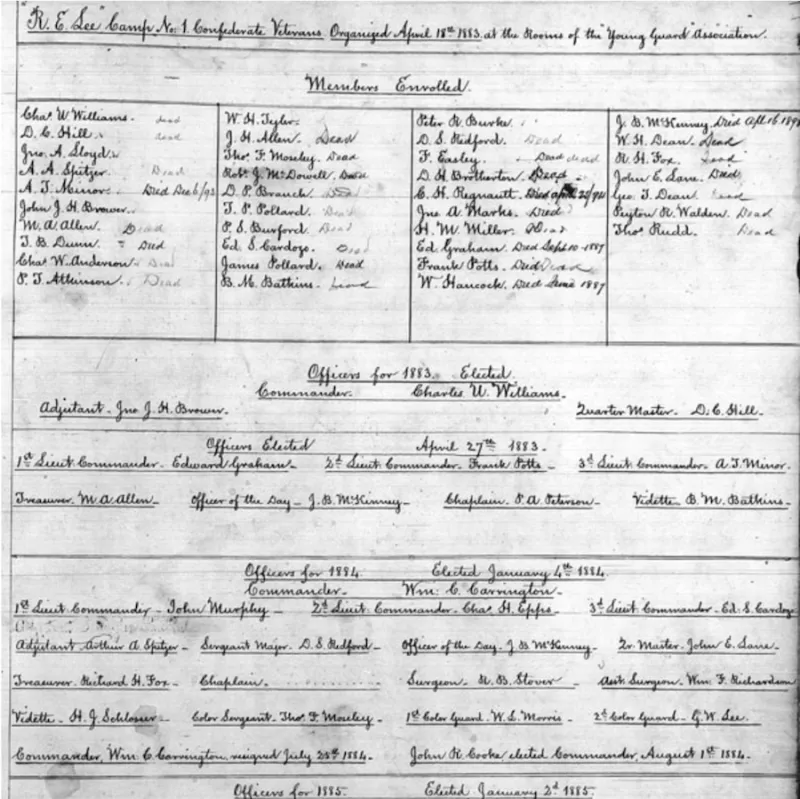 "R. E. Lee" Camp No. 1. Confederate Veterans. Organized April 18th 1883. at the Rooms of the "Young Guard" Association.
Members Enrolled.
Chas. U. Williams. dead
D. C. Hill. dead
Jno. A. Lloyd.
A. A. Spitzer. Dead
A. T. Minor. Died Dec 6/93
John J. H. Brower.
M. A. Allen. Dead
T. B. Dunn. Died
Chas. W. Anderson. Dead
P. T. Atkinson. Dead
W. H. Tyler.
J. H. Allen. Dead
Thos. F. Moseley. Dead
Robt. J. McDowell. Dead
D. P. Branch. Dead
T. P. Pollard. Dead
P. S. Burford. Dead
Ed. S. Cardozo. Dead
James Pollard. Dead
B. M. Batkins. Dead
Peter R. Burke.
D. S. Redford. Dead
F. Easley. Dead dead
D. H. Brotherton. Dead
C. H. Regnault. Died April
Jno. A. Marks. Died
H. M. Miller. Dead
Ed. Graham. Died Sept. 10 - 1887
Frank Potts. Died Dead
W. Hancock. Died June 1887
J. B. McKenney. Died Apl. 16. 189
W. H. Dean. Dead
R. H. Fox. Dead
John E. Lane. Died
Geo. T. Dean. Dead
Peyton R. Walden. Dead
Thos. Rudd. Dead
Officers for 1883. Elected.
Commander. Charles U. Williams.
Adjutant - Jno J. H. Brown. Quarter Master. D. C. Hill.
Officers Elected April 27th 1883.
1st Lieut Commander - Edward Graham - 2d Lieut Commander - Frank Potts - 3d Lieut Commander - A. T. Minor.
Treasurer. M. A. Allen - Officer of the Day - J. B. McKinney - Chaplain. P. A. Peterson - Vidette - B. M. Batkins -
Officers for 1884. Elected January 4th 1884.
Commander - Wm. C. Carrington.
1st Lieut Commander - John Murphy - 2d Lieut Commander - Chas. H. Epps. 3d Lieut Commander - Ed. S. Cardozo
Adjutant Arthur A. Spitzer - Sergeant Major. D. S. Redford - Officer of the Day - J. B. McKenney - Qr. Master - John E. Lane -
Treasurer. Richard H. Fox - Chaplain. Surgeon - R. B. Stover - Asst. Surgeon. Wm. F. Richardson
Vidette - H. J. Schlosser - Color Sergeant - Thos. F. Moseley - 1st Color Guard - W. L. Morris - 2d Color Guard - G. W. Lee.
Commander, Wm. C. Carrington, resigned July 25th 1884 - John R. Cooke elected Commander, August 1st 1884.
Officers for 1885. Elected January 2d 1885.